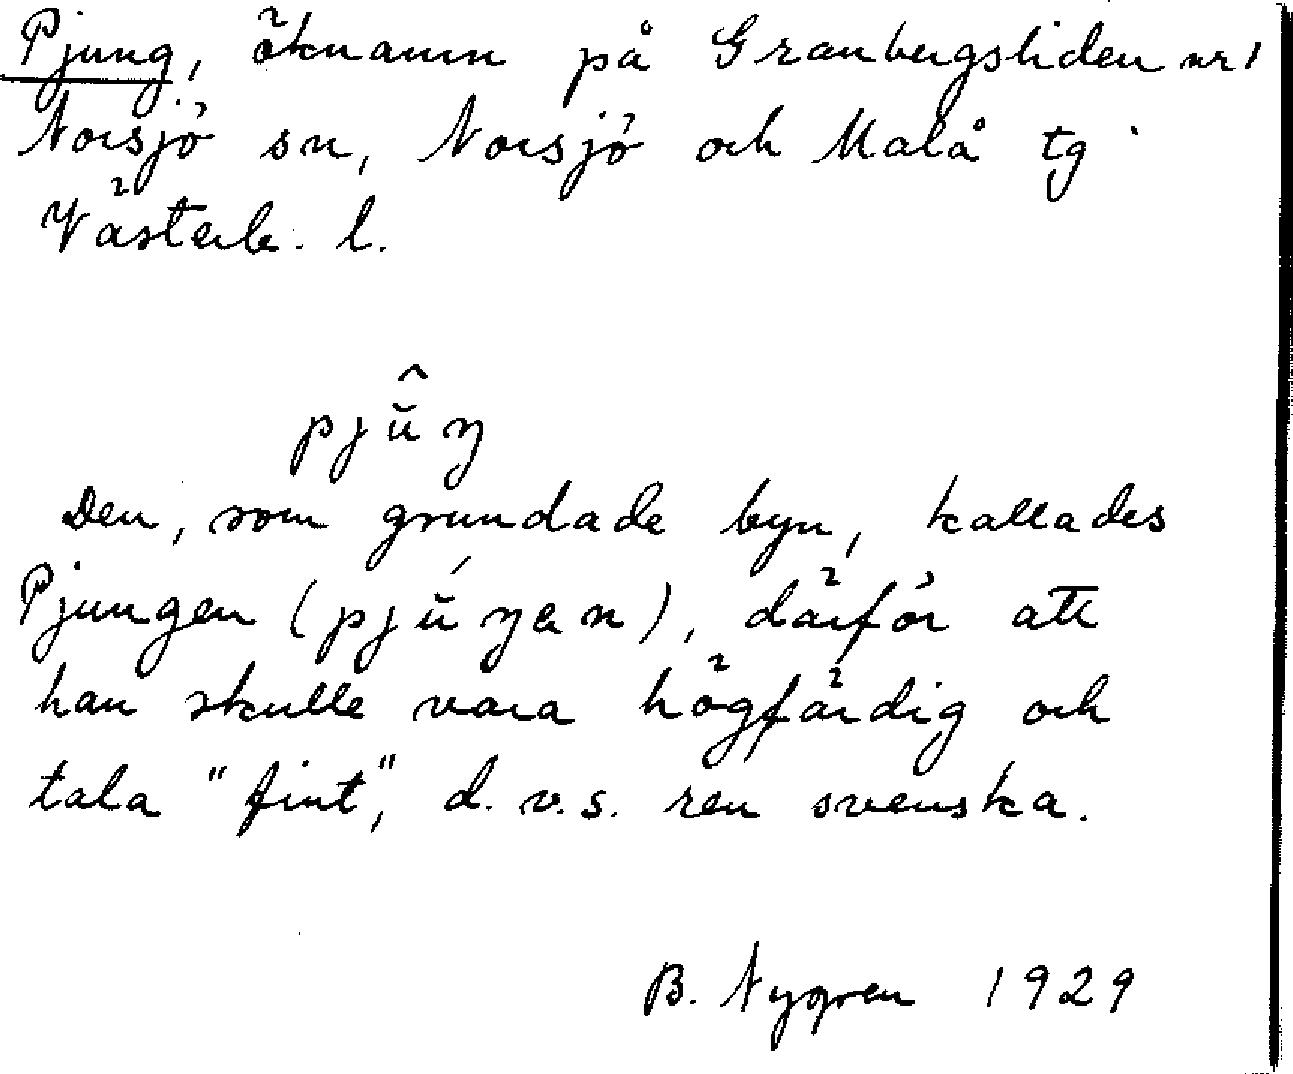 Pjung, öknamn på Granbergsliden nr 1
Norsjö sn, Norsjö och Malå tg
Västerb. l.
pjŭ̂ŋ
Den, som grundade byn, kallades
Pjungen (pjŭ́ŋɐn), därför att
han skulle vara högfärdig och
tala "fint", d.v.s. ren svenska.
B. Nygren 1929